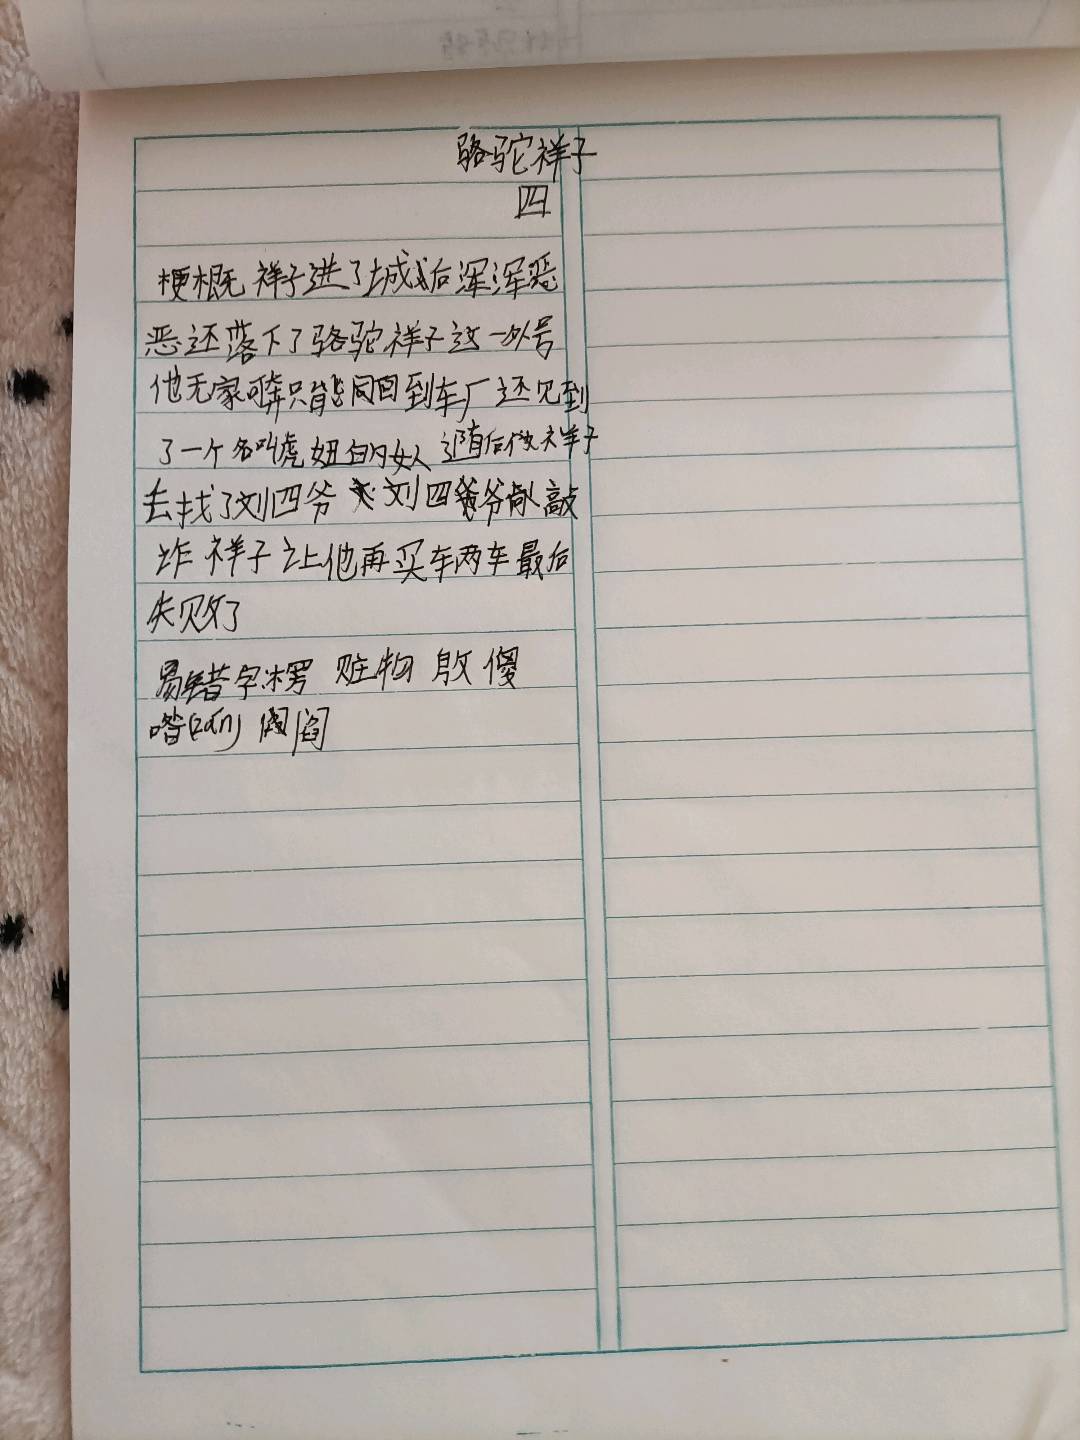 骆驼祥子
四
梗概 祥子进了城后浑浑恶
恶还落下了骆驼祥子这一外号
他无家可奔只能回到车厂还见到
了一个名叫虎妞的女人 随后他祥子
去找了刘四爷 刘四爷敲
诈 祥子让他再买车两车最后
失败了
易错字 愣 赃物 殷 傻
喒(zán) 阎